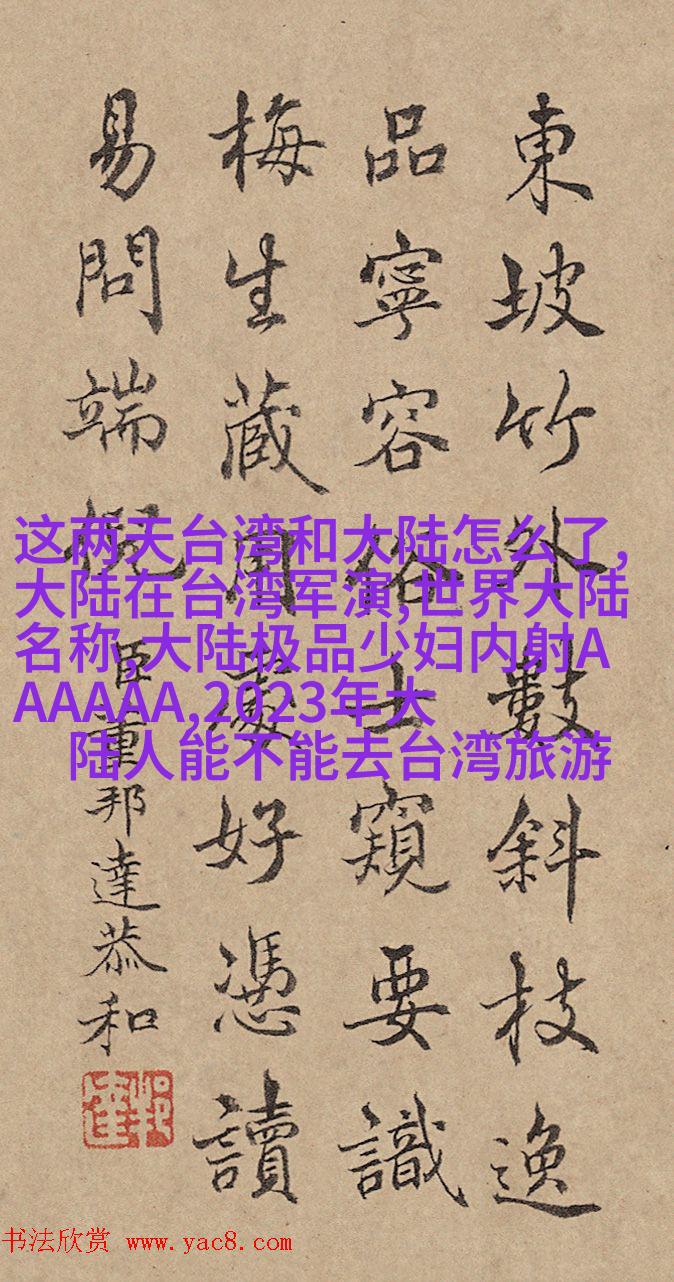 東坡竹外數斜枝逸
品寧容俗士窺要識
梅生蔵用處好憑讀
易問端倪
臣董邦達恭和
这两天台湾和大陆怎么了,
大陆在台湾军演,世界大陆
名称,大陆极品少妇内射A
AAAAAA,2023年大
陆人能不能去台湾旅游
书法欣赏 www.yac8.com